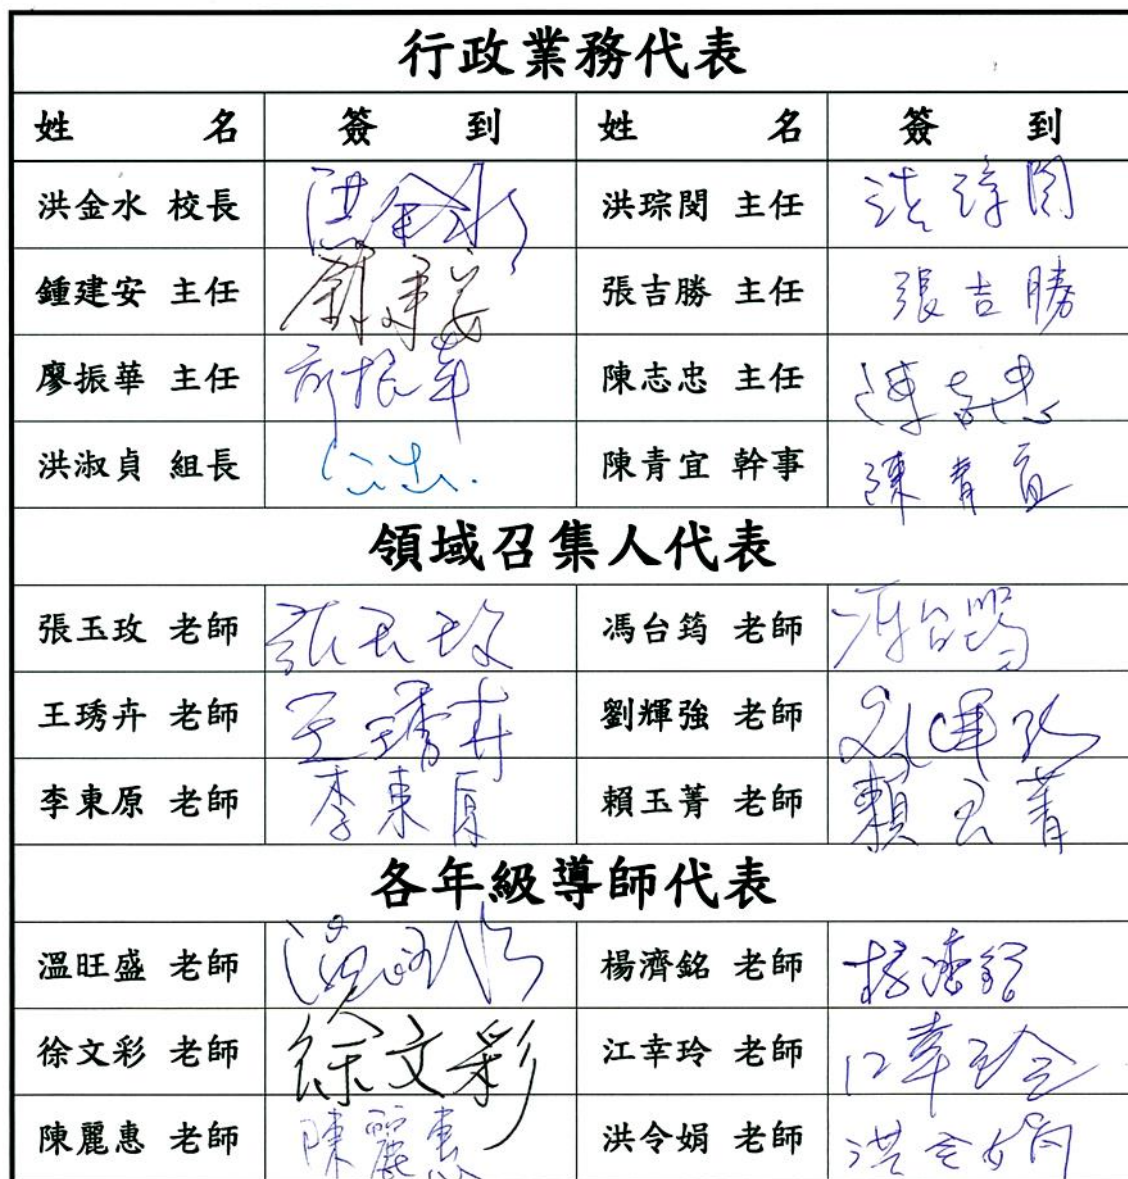 行政業務代表
姓 名 簽 到 姓 名 簽 到
洪金水 校長 洪金水 洪琮閔 主任 洪琮閔
鍾建安 主任 張吉勝 主任 張吉勝
廖振華 主任 廖振華 陳志忠 主任 陳志忠
洪淑貞 組長 公出. 陳青宜 幹事 陳青宜
領域召集人代表
張玉玫 老師 張玉玫 馮台筠 老師 馮台筠
王琇卉 老師 王琇卉 劉輝強 老師 刘輝強
李東原 老師 李東原 賴玉菁 老師 賴玉菁
各年級導師代表
溫旺盛 老師 楊濟銘 老師 楊濟銘
徐文彩 老師 徐文彩 江幸玲 老師 江幸玲
陳麗惠 老師 陳麗惠 洪令娟 老師 洪令娟